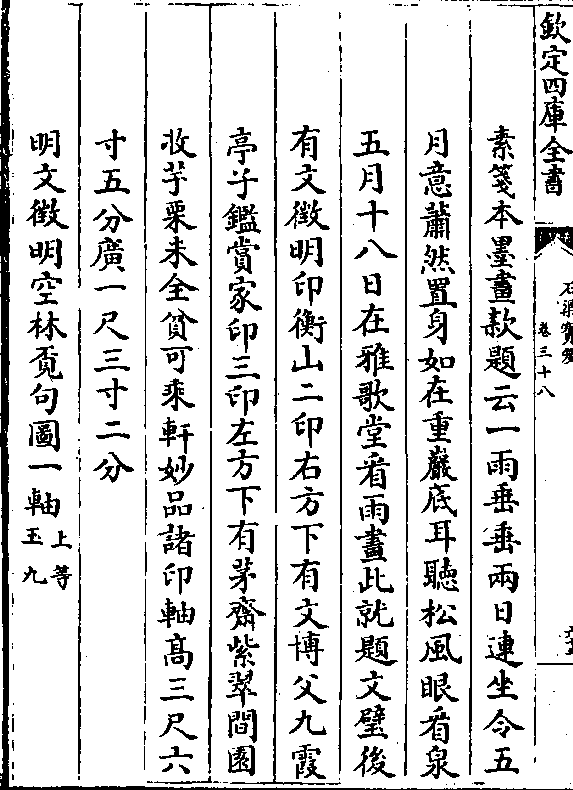 欽定四庫全書
石渠寳笈
卷三十八
素箋本墨畫款題云一雨垂垂兩日連坐令五
月意蕭然置身如在重巖底耳聽松風眼看泉
五月十八日在雅歌堂看雨畫此就題文璧後
有文徵明印衡山二印右方下有文博父九霞
亭子鑑賞家印三印左方下有茅齋紫翠間園
收芋栗未全貧可乘軒妙品諸印軸髙三尺六
寸五分廣一尺三寸二分
明文徵明空林覔句圖一軸 上等
玉九